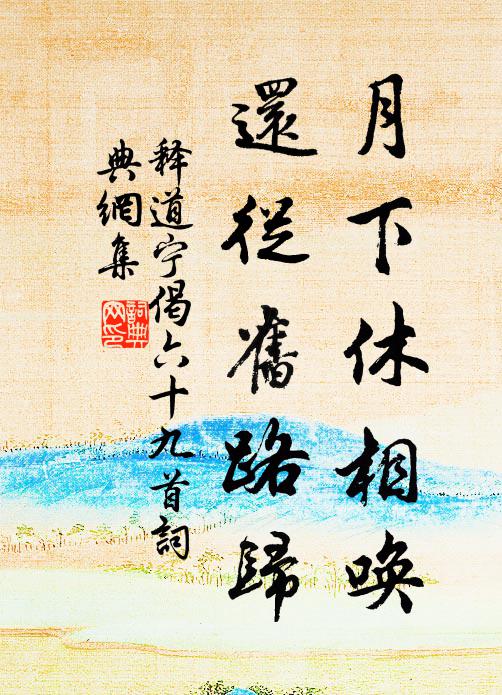 月下休相唤
還從舊路歸
释道宁偈六十九首詞
典網集
詞典
网印